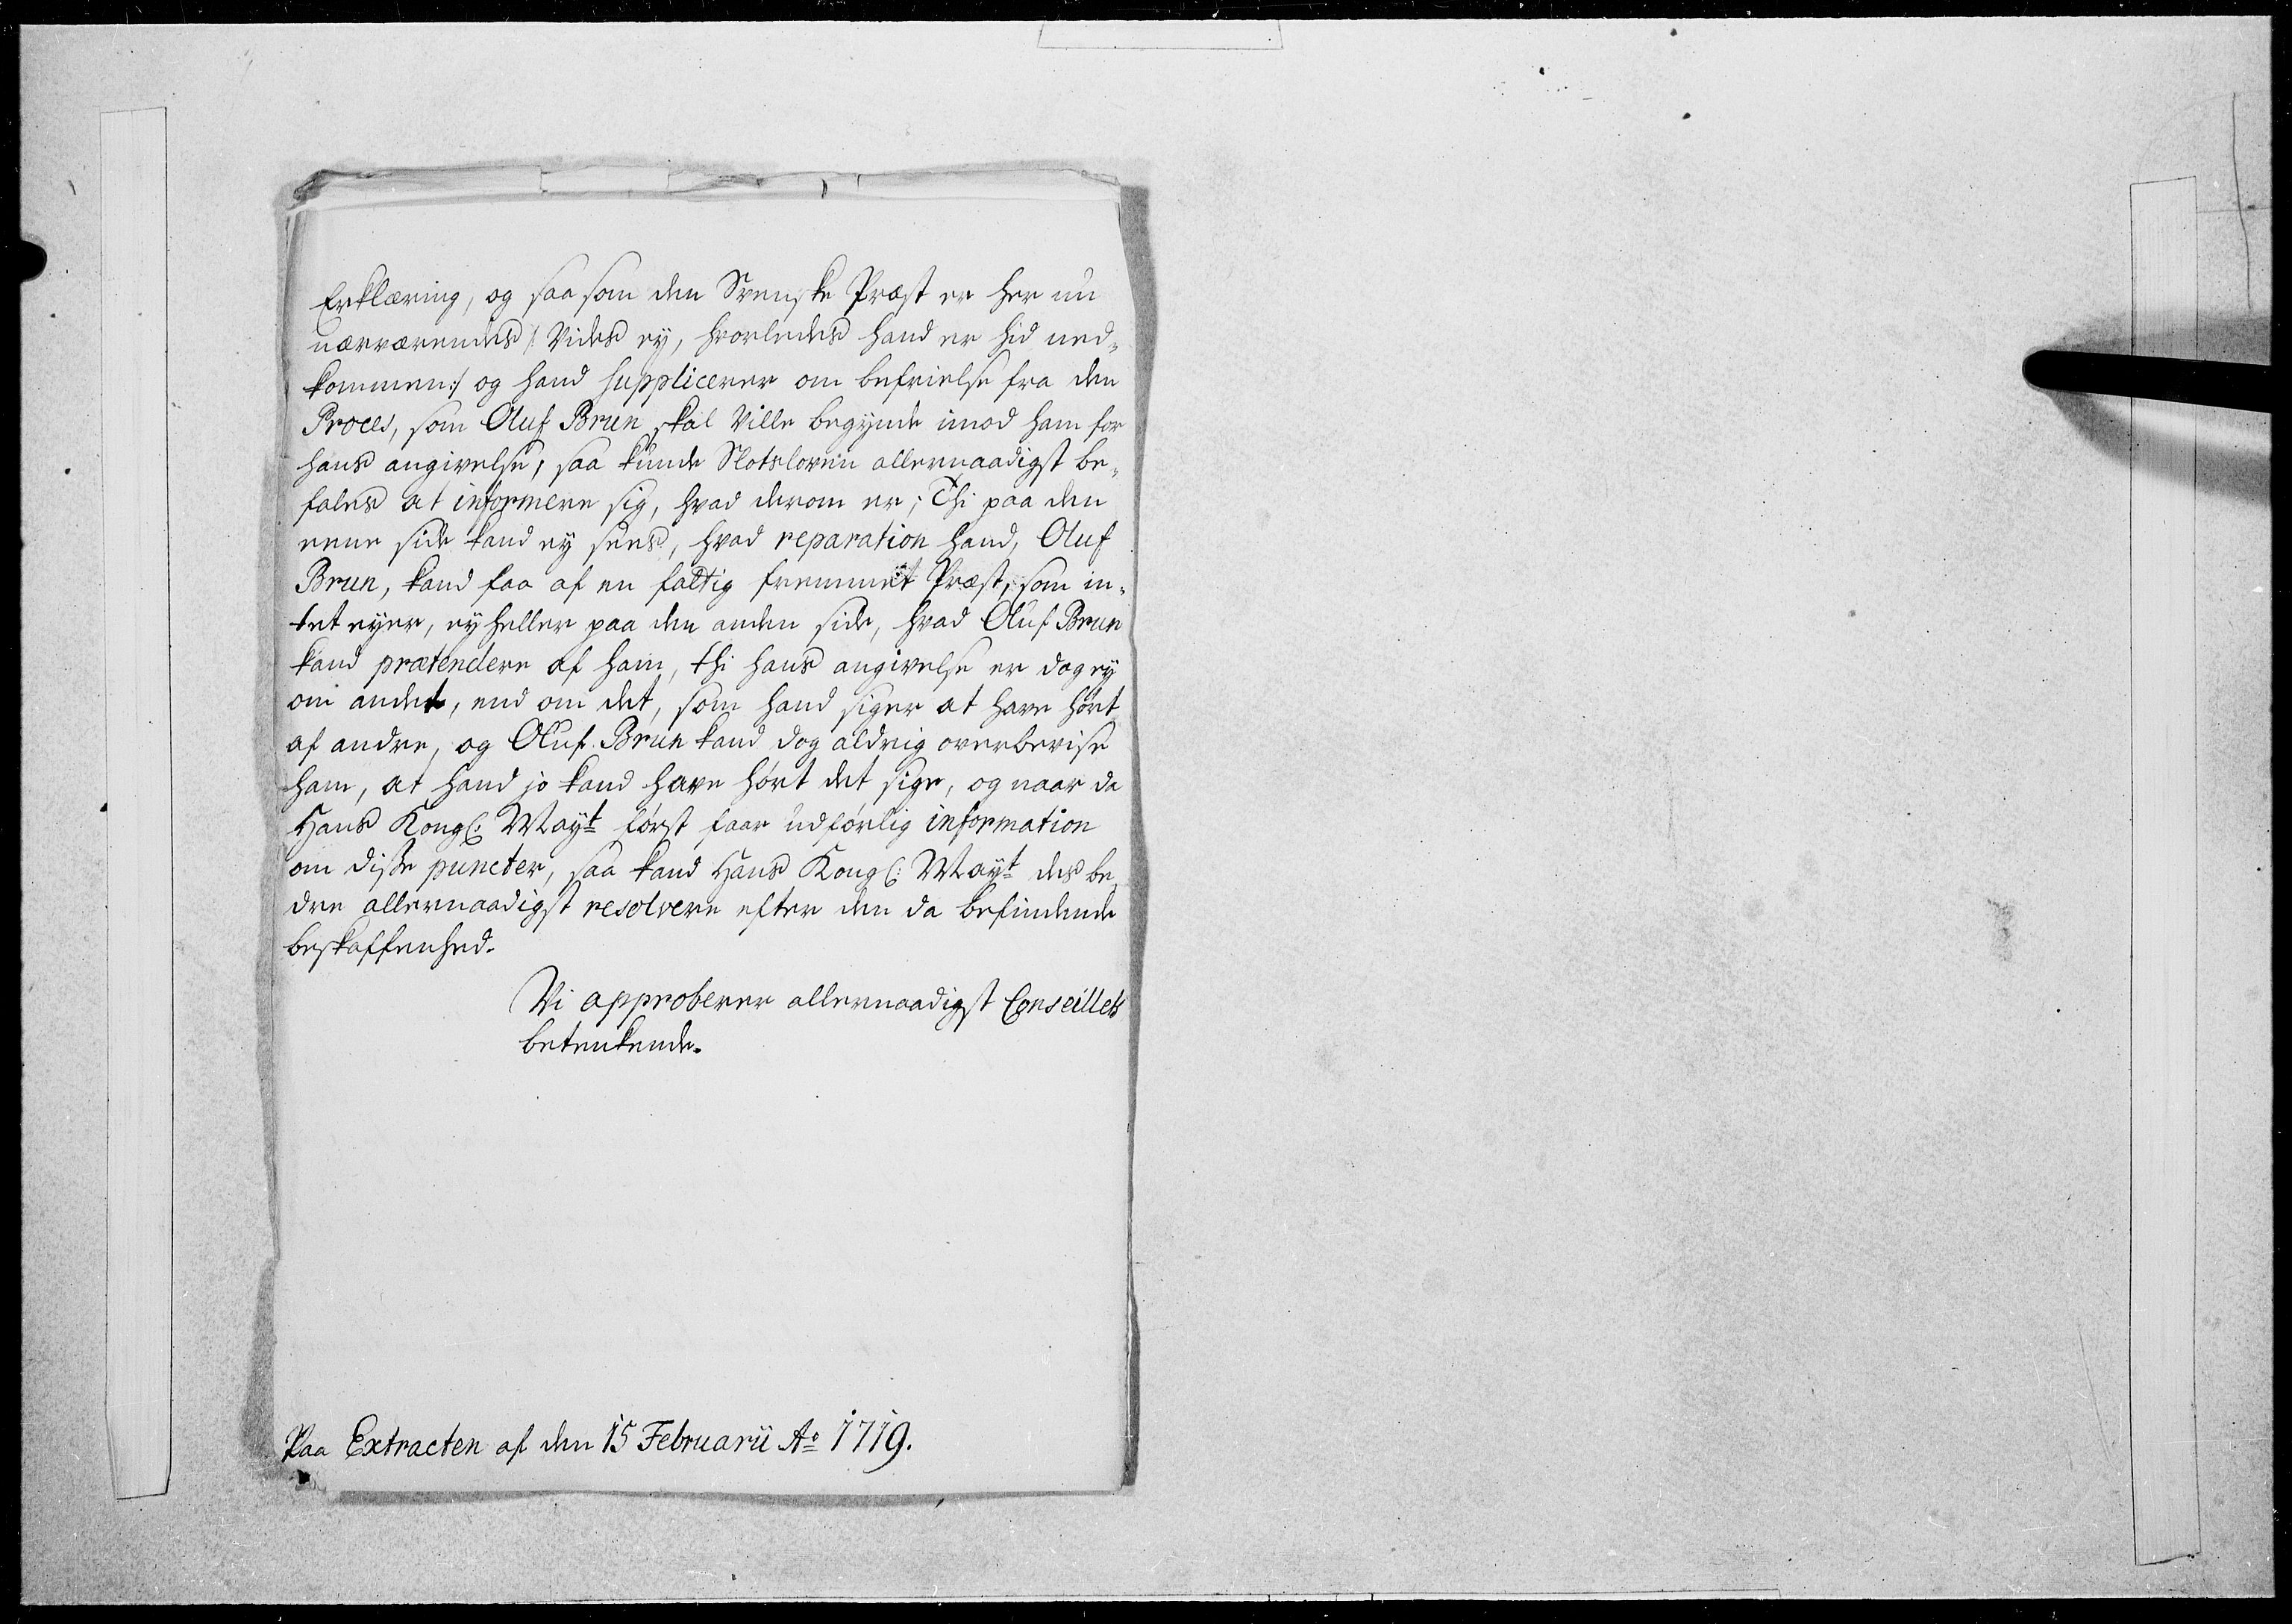 Erklæring, og saa som den Svenske Præst er her nu
nærværendes /: Vides ey, hvorledes hand er hid ned-
kommen :/ og hand supplicerer om befrielse fra den
Proces, som Oluf Brun skal Ville begynde imod ham for
hans angivelse, saa kunde Slotsloven allernaadigst be-
fales at informere sig, hvad derom er; Thi paa den
eene side kand ey sees, hvad reparation hand, Oluf
Brun, kand faa af en fattig fremmet Præst, som in-
tet eyer, ey heller paa den anden side, hvad Oluf Brun
kand prætendere af ham, thi hans angivelse er dog ey
om andet, end om det, som hand siger at have hørt
af andre, og Oluf Brun kand dog aldrig overbevise
ham, at hand jo kand have hørt det sige, og naar da
Hans Kongl: Mayt først faar udførlig information
om disse puncter, saa kand Hans Kongl: Mayt des be
dre allernaadigst resolvere efter den da befindende
beskaffenhed.
Vi approberer allernaadigst Conseillets
betenkende.
Paa Extracten af den 15 Februarii Ao 1719.